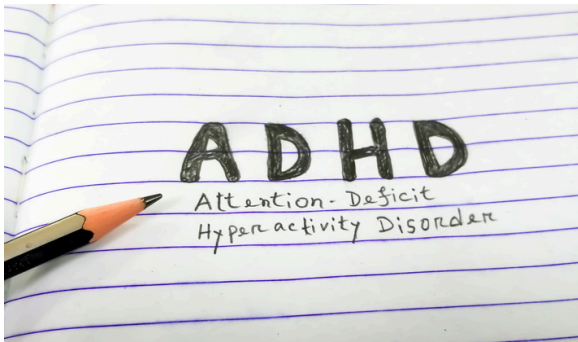 ADHD
Attention-Deficit
Hyperactivity Disorder